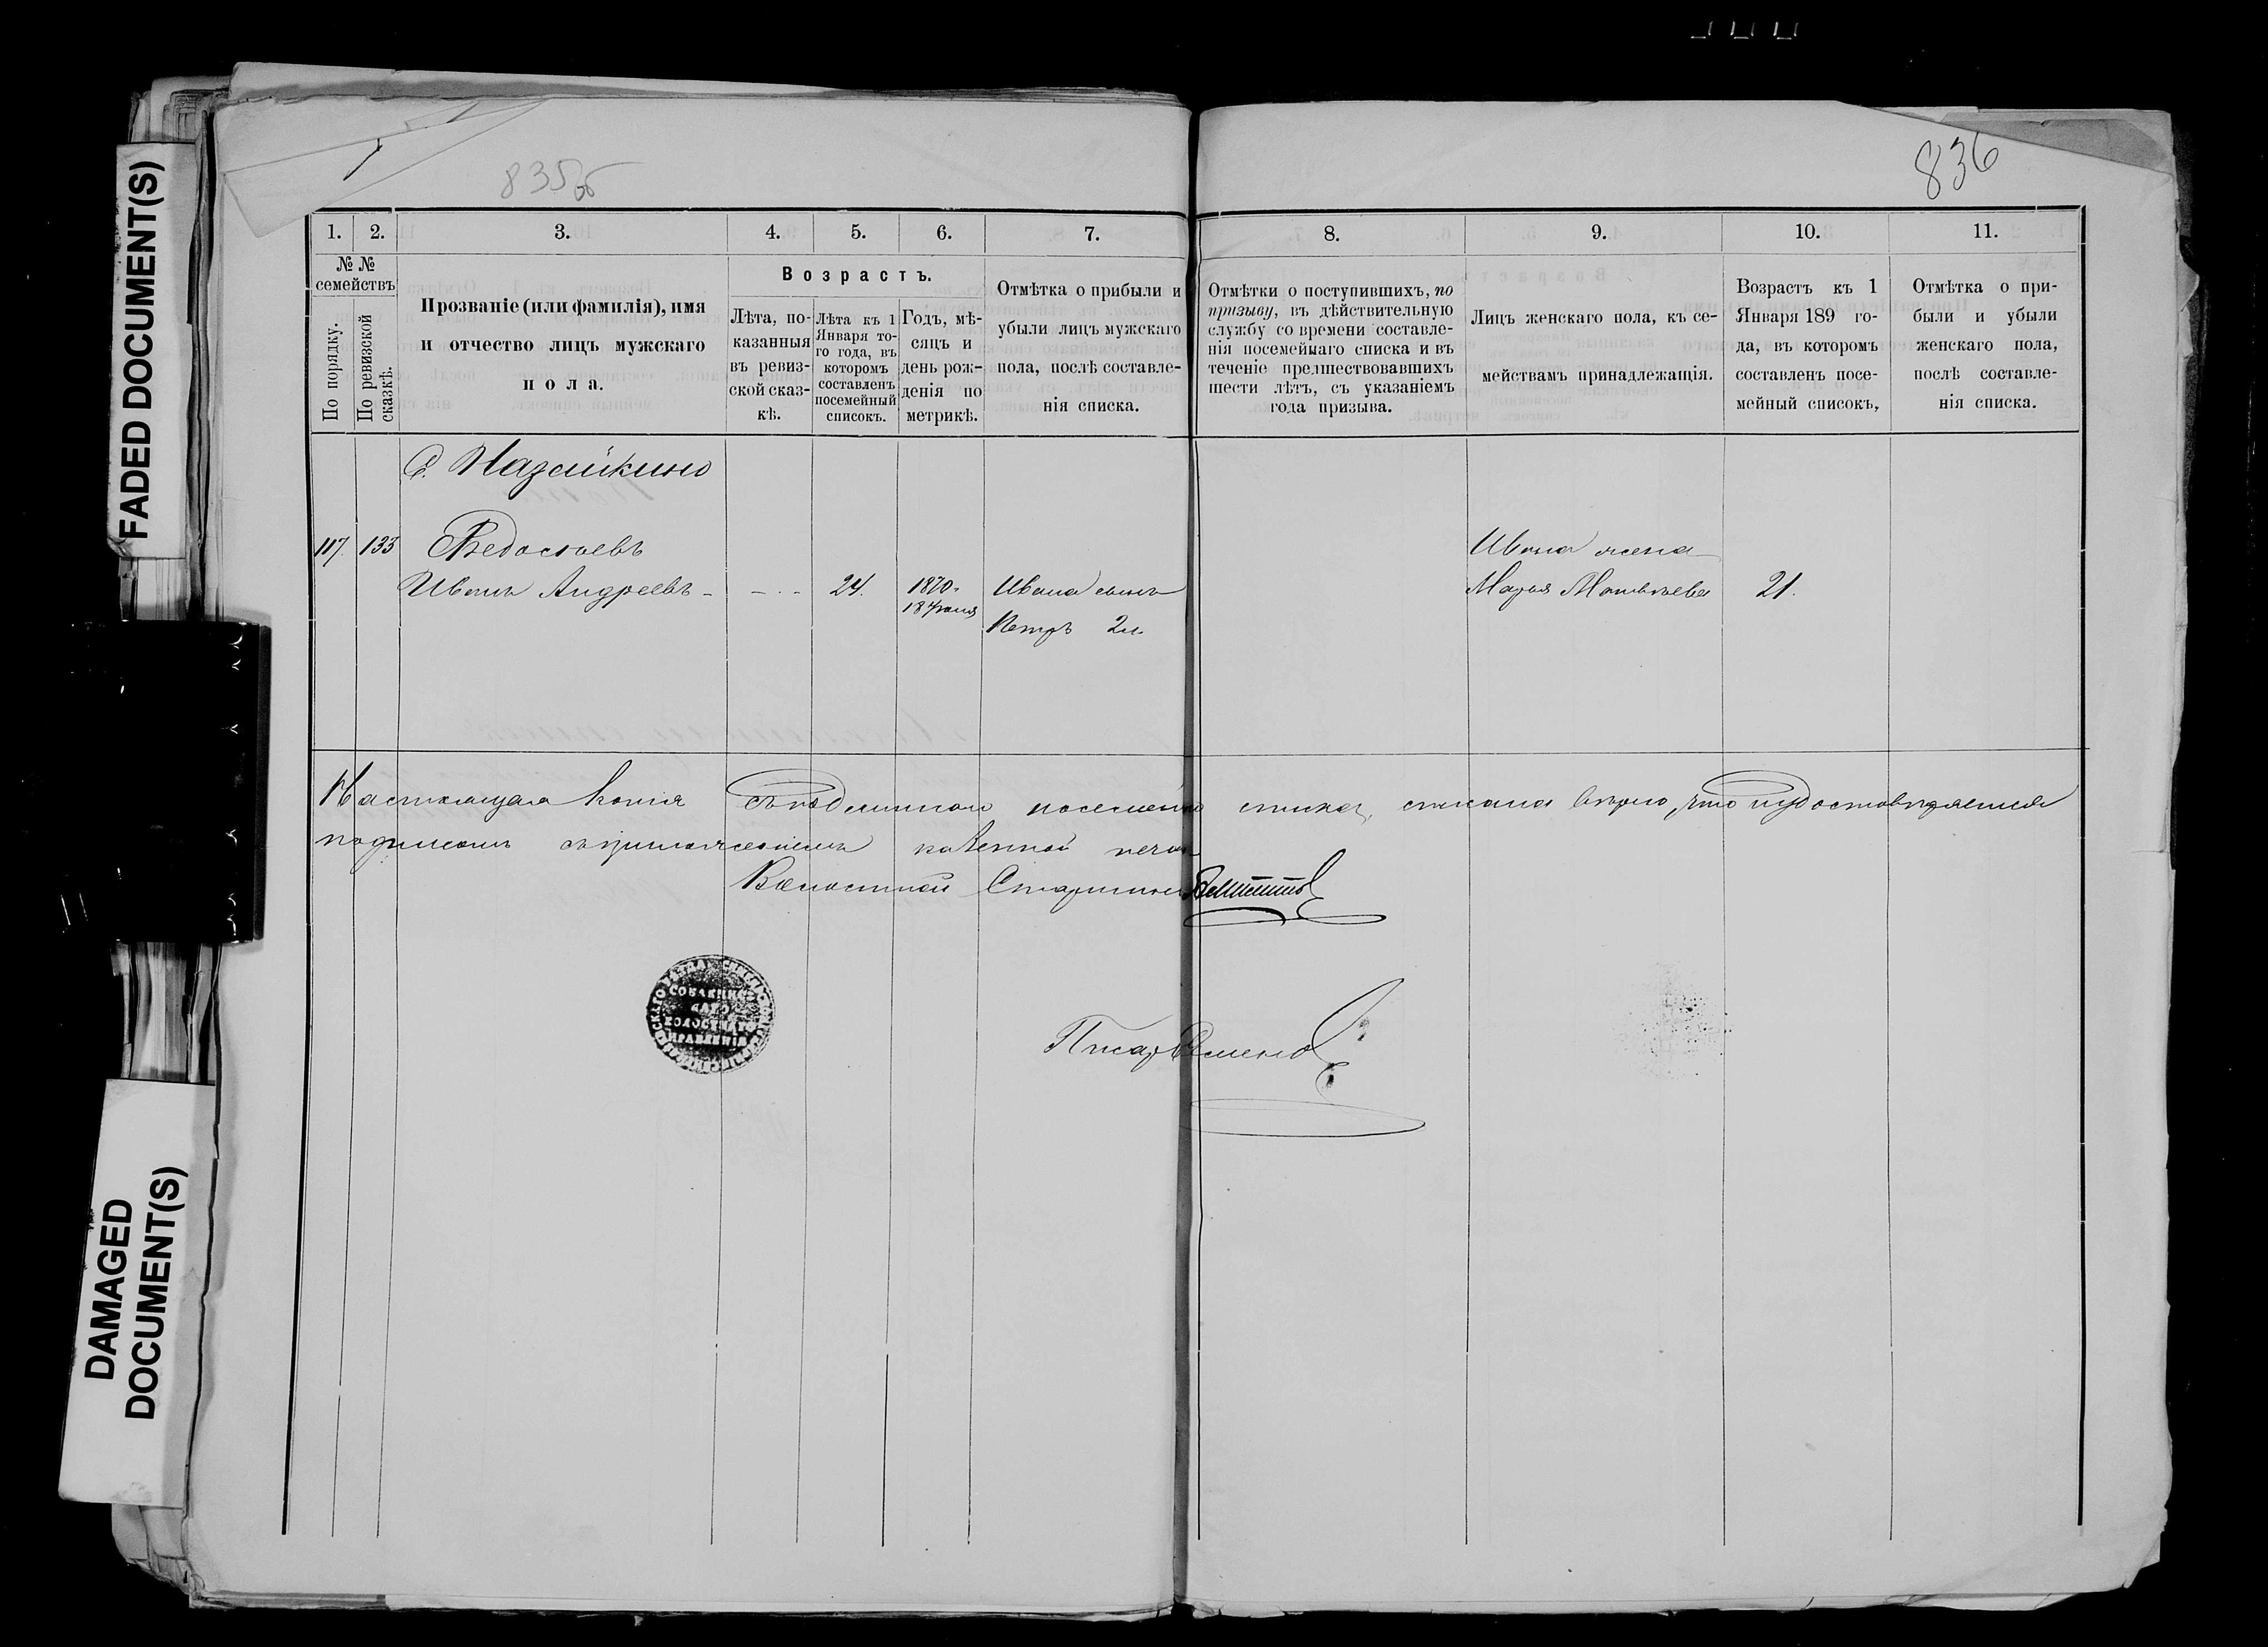 FADED DOCUMENT(S)
DAMAGED
DOCUMENT(S)
835об
836
1. 2. 3. 4. 5. 6. 7. 8. 9. 10. 11.
№ №
семействъ
По порядку.
По ревизской
сказкѣ.
Прозваніе (или фамилія), имя
и отчество лицъ мужскаго
пола.
Возрастъ.
Лѣта, по-
казанныя
въ ревиз-
ской сказ-
кѣ.
Лѣта къ 1
Января то-
го года, въ
которомъ
составленъ
посемейный
списокъ.
Годъ, мѣ-
сяцъ и
день рож-
денія по
метрикѣ.
Отмѣтка о прибыли и
убыли лицъ мужскаго
пола, послѣ составле-
нія списка.
Отмѣтки о поступившихъ, по
призыву, въ дѣйствительную
службу со времени составле-
нія посемейнаго списка и въ
теченіе предшествовавшихъ
шести лѣтъ, съ указаніемъ
года призыва.
Лицъ женскаго пола, къ се-
мействамъ принадлежащія.
Возрастъ къ 1
Января 189 го-
да, въ которомъ
составленъ посе-
мейный списокъ,
Отмѣтка о при-
были и убыли
женскаго пола,
послѣ составле-
нія списка.
д. Назайкино
117. 133 Ѳедосѣевъ Ивана жена
Иванъ Андреевъ - - . - 24. 1870. Ивана сынъ Марья Матвѣева 21.
18
Петръ 2
Настоящая копія съ подлиннаго посемейн списка, списана вѣрно, что и удостовѣряется
подписомъ съ приложеніемъ казенной печати
Волостной Старшина
СОБАКИНС
КАГО
ВОЛОСТНАГО
ПРАВЛЕНІЯ
Писарь Семенов